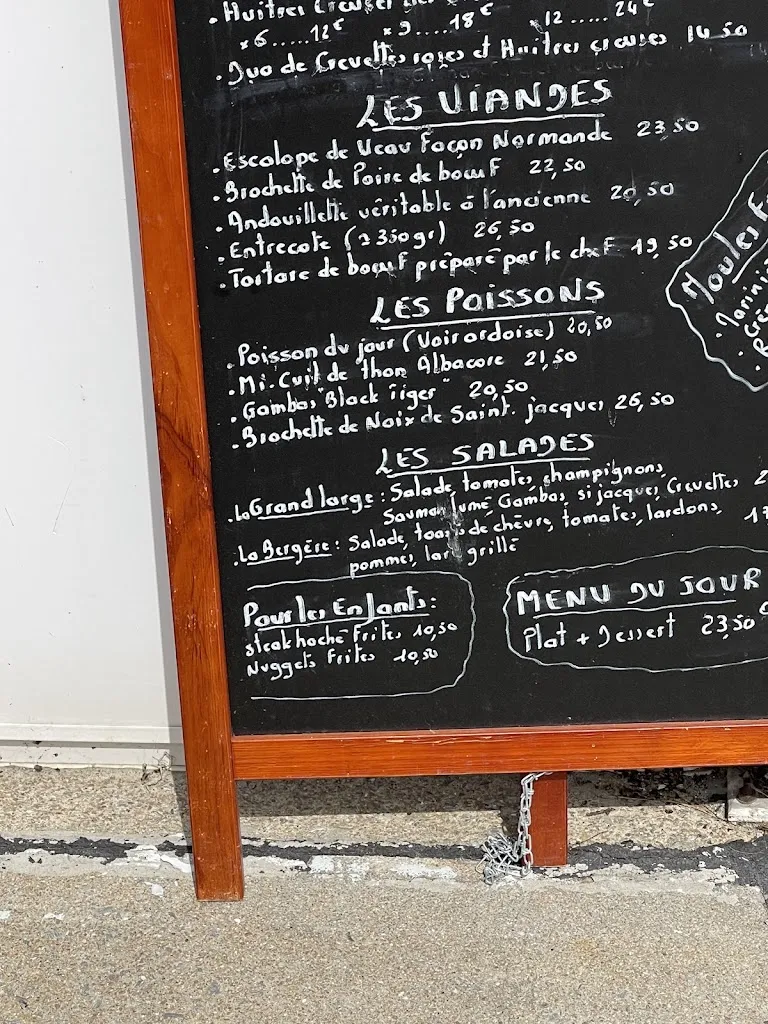 . Huitres Creuses
x6.....12€ x9....18€ x12.....24€
. Duo de Crevettes roses et Huitres creuses 14,50
LES VIANDES
. Escalope de Veau Façon Normande 23,50
. Brochette de Poire de bœuf 22,50
. Andouillette véritable à l'ancienne 20,50
. Entrecote (± 350gr) 26,50
. Tartare de bœuf préparé par le chef 19,50
LES POISSONS
. Poisson du jour (Voir ardoise) 20,50
. Mi-Cuit de thon Albacore 21,50
. Gambas "Black Tiger" 20,50
. Brochette de Noix de Saint-jacques 26,50
LES SALADES
. La Grand large : Salade, tomates, champignons,
Saumon fumé, Gambas, st jacques, Crevettes
. La Bergère : Salade, toasts de chèvre, tomates, lardons,
pommes, lard grillé
Pour les Enfants :
Steak haché Frites 10,50
Nuggets Frites 10,50
MENU DU JOUR
Plat + Dessert 23,50€
Moules